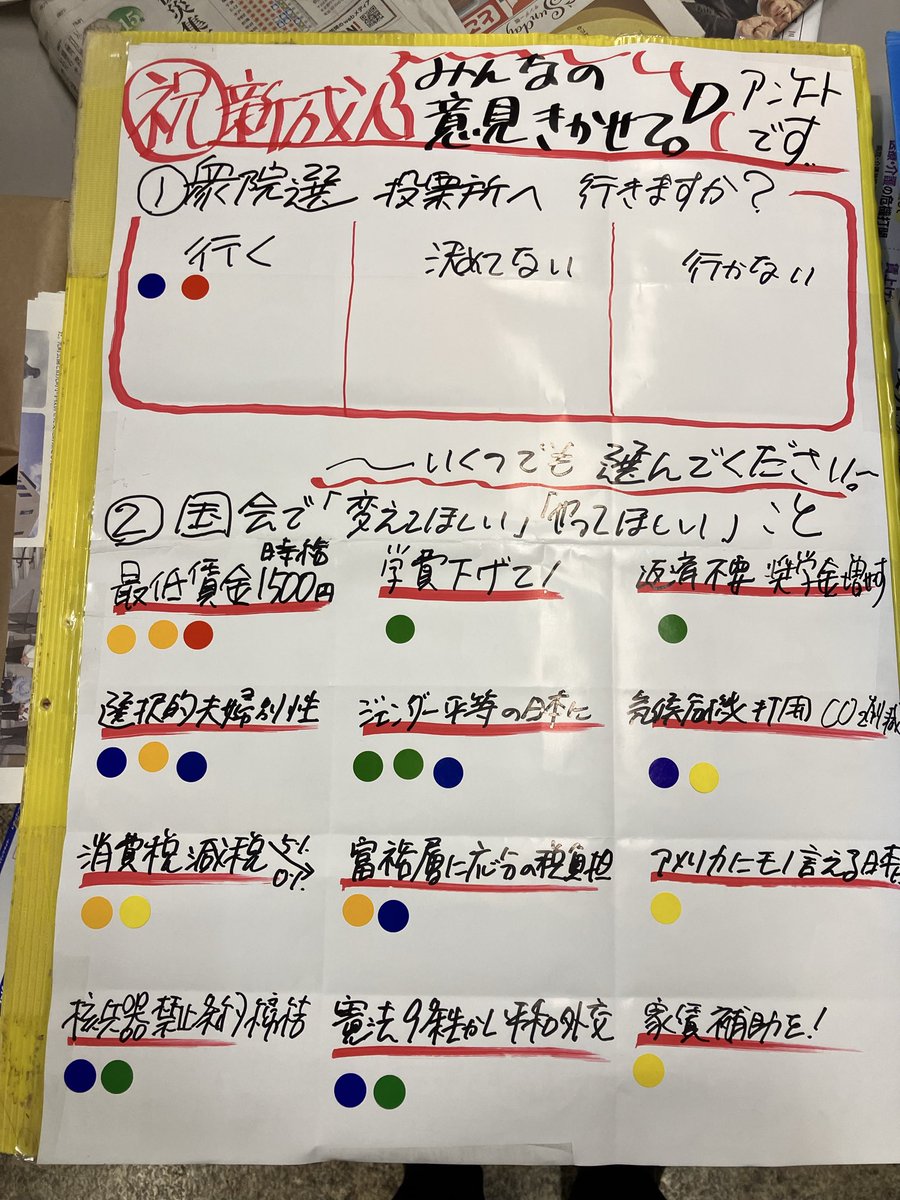 祝 新成人 みんなの
意見きかせて。
アンケート
です
①衆院選 投票所へ 行きますか?
行く 決めてない 行かない
〜いくつでも選んでください。〜
②国会で「変えてほしい」「やってほしい」こと
最低賃金時給1500円 学費下げて! 返済不要 奨学金増す
選択的夫婦別性 ジェンダー平等の日本に 気候危機打開 CO2削減
消費税減税 5% 0% 富裕層に応分の税負担 アメリカにモノ言える日本
核兵器禁止条約締結 憲法9条生かし平和外交 家賃補助を!
Sunday